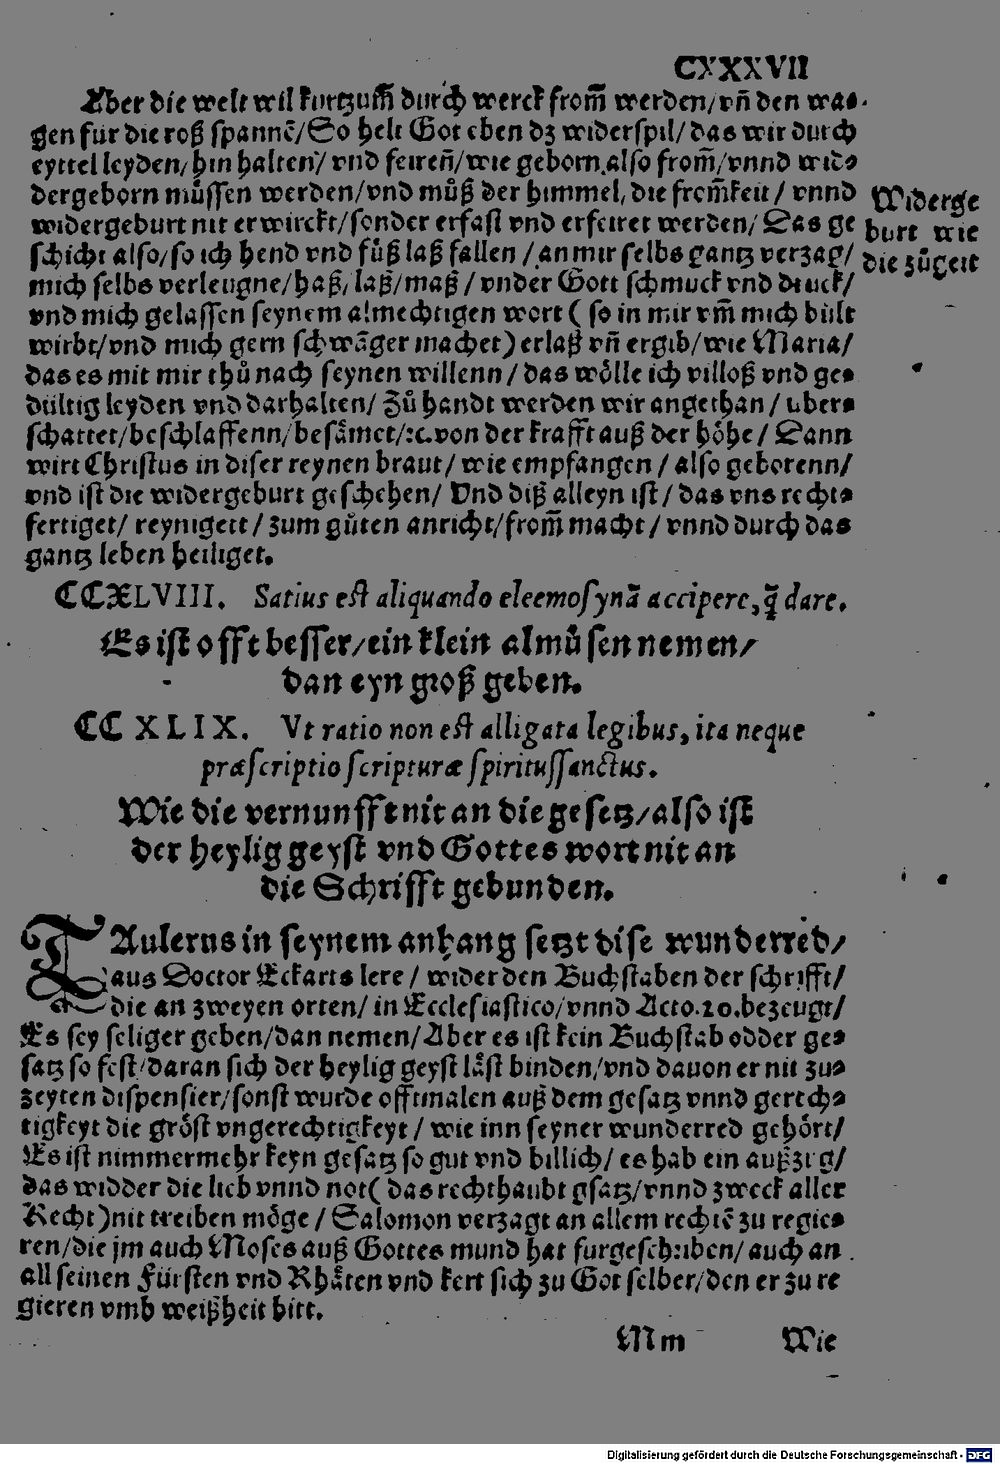 CXXXVII
Aber die welt wil kurtzum̃ durch werck from̃ werden/vñ den wa-
gen für die roß spannẽ/So helt Got eben dz widerspil/das wir durch
eyttel leyden/hin halten/vnd feireñ/wie geborn also from̃/vnnd wi-
dergeborn müssen werden/vnd můß der himmel, die from̃keit/vnnd
widergeburt nit erwirckt/sonder erfast vnd erfeiret werden/Das ge
schicht also/so ich hend vnd füß laß fallen/an mir selbs gantz verzag/
mich selbs verleugne/haß/laß/maß/vnder Gott schmuck vnd druck/
vnd mich gelassen seynem almechtigen wort (so in mir vm̃ mich bůlt
wirbt/vnd mich gern schwãger machet) erlaß vñ ergib/wie Maria/
das es mit mir thů nach seynen willenn/das wölle ich villoß vnd ge-
dültig leyden vnd darhalten/Zů handt werden wir angethan/uber-
schattet/beschlaffenn/besämet/ꝛc.von der krafft auß der höhe/Dann
wirt Christus in diser reynen braut/wie empfangen/also geborenn/
vnd ist die widergeburt geschehen/Vnd diß alleyn ist/das vns recht-
fertiget/reyniget/zum gůten anricht/from̃ macht/vnnd durch das
gantz leben heiliget.
Widerge
burt wie
die zůgeit
CCXLVIII. Satius est aliquando eleemosynã accipere, q̃ dare.
Es ist offt besser/ein klein almůsen nemen/
dan eyn groß geben.
CCXLIX. Vt ratio non est alligata legibus, ita neque
præscriptio scripturæ spiritussanctus.
Wie die vernunfft nit an die gesetz/also ist
der heylig geyst vnd Gottes wort nit an
die Schrifft gebunden.
TAulerus in seynem anhang setzt dise wunderred/
aus Doctor Eckarts lere/wider den Buchstaben der schrifft/
die an zweyen orten/in Ecclesiastico/vnnd Acto.20.bezeugt/
Es sey seliger geben/dan nemen/Aber es ist kein Buchstab odder ge-
satz so fest/daran sich der heylig geyst läst binden/vnd dauon er nit zu-
zeyten dispensier/sonst wurde offtmalen auß dem gesatz vnnd gerech-
tigkeyt die gröst vngerechtigkeyt/wie inn seyner wunderred gehört/
Es ist nimmermehr keyn gesatz so gut vnd billich/es hab ein außzug/
das widder die lieb vnnd not(das recht haubt gsatz/vnnd zweck aller
Recht)nit treiben möge/Salomon verzagt an allem rechtẽ zu regie-
ren/die jm auch Moses auß Gottes mund hat furgeschriben/auch an
all seinen Fürsten vnd Rhäten vnd kert sich zu Got selber/den er zu re
gieren vmb weißheit bitt.
Mm Wie
Digitalisierung gefördert durch die Deutsche Forschungsgemeinschaft - DFG